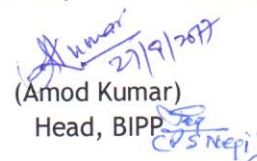 Kumar
27/9/2017
(Amod Kumar)
Head, BIPP